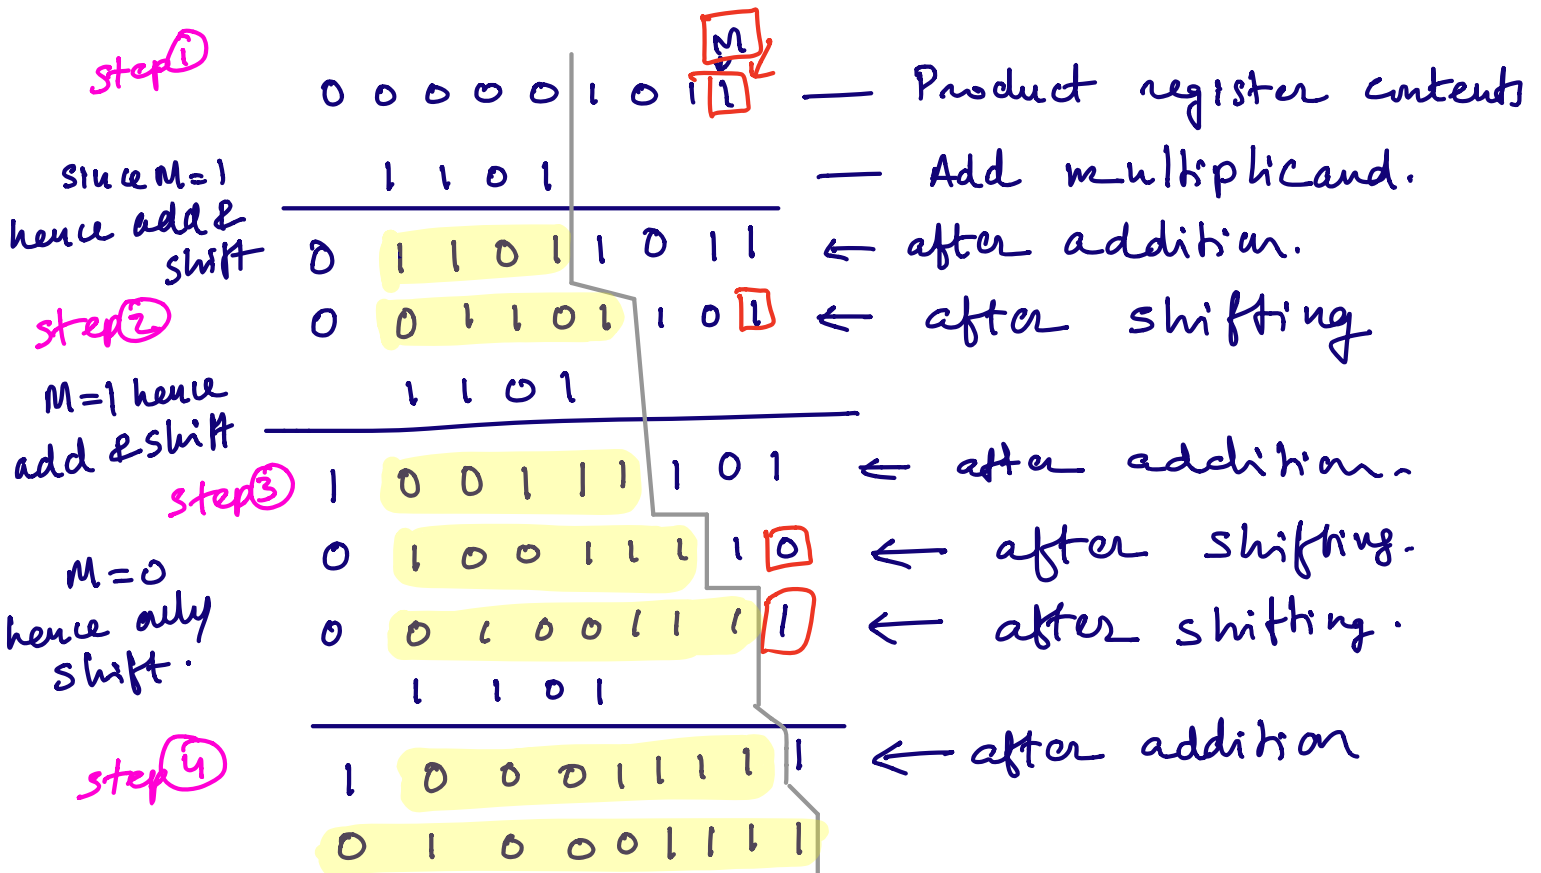 step 1
M
0 0 0 0 0 1 0 1 1 — Product register contents
since M=1 hence add & shift
1 1 0 1 — Add multiplicand.
0 1 1 0 1 1 0 1 1 ← after addition.
step 2
0 0 1 1 0 1 1 0 1 ← after shifting
M=1 hence add & shift
1 1 0 1
step 3
1 0 0 1 1 1 1 0 1 ← after addition.
0 1 0 0 1 1 1 1 0 ← after shifting.
M=0 hence only shift.
0 0 1 0 0 1 1 1 1 ← after shifting.
1 1 0 1
step 4
1 0 0 0 1 1 1 1 1 ← after addition
0 1 0 0 0 1 1 1 1